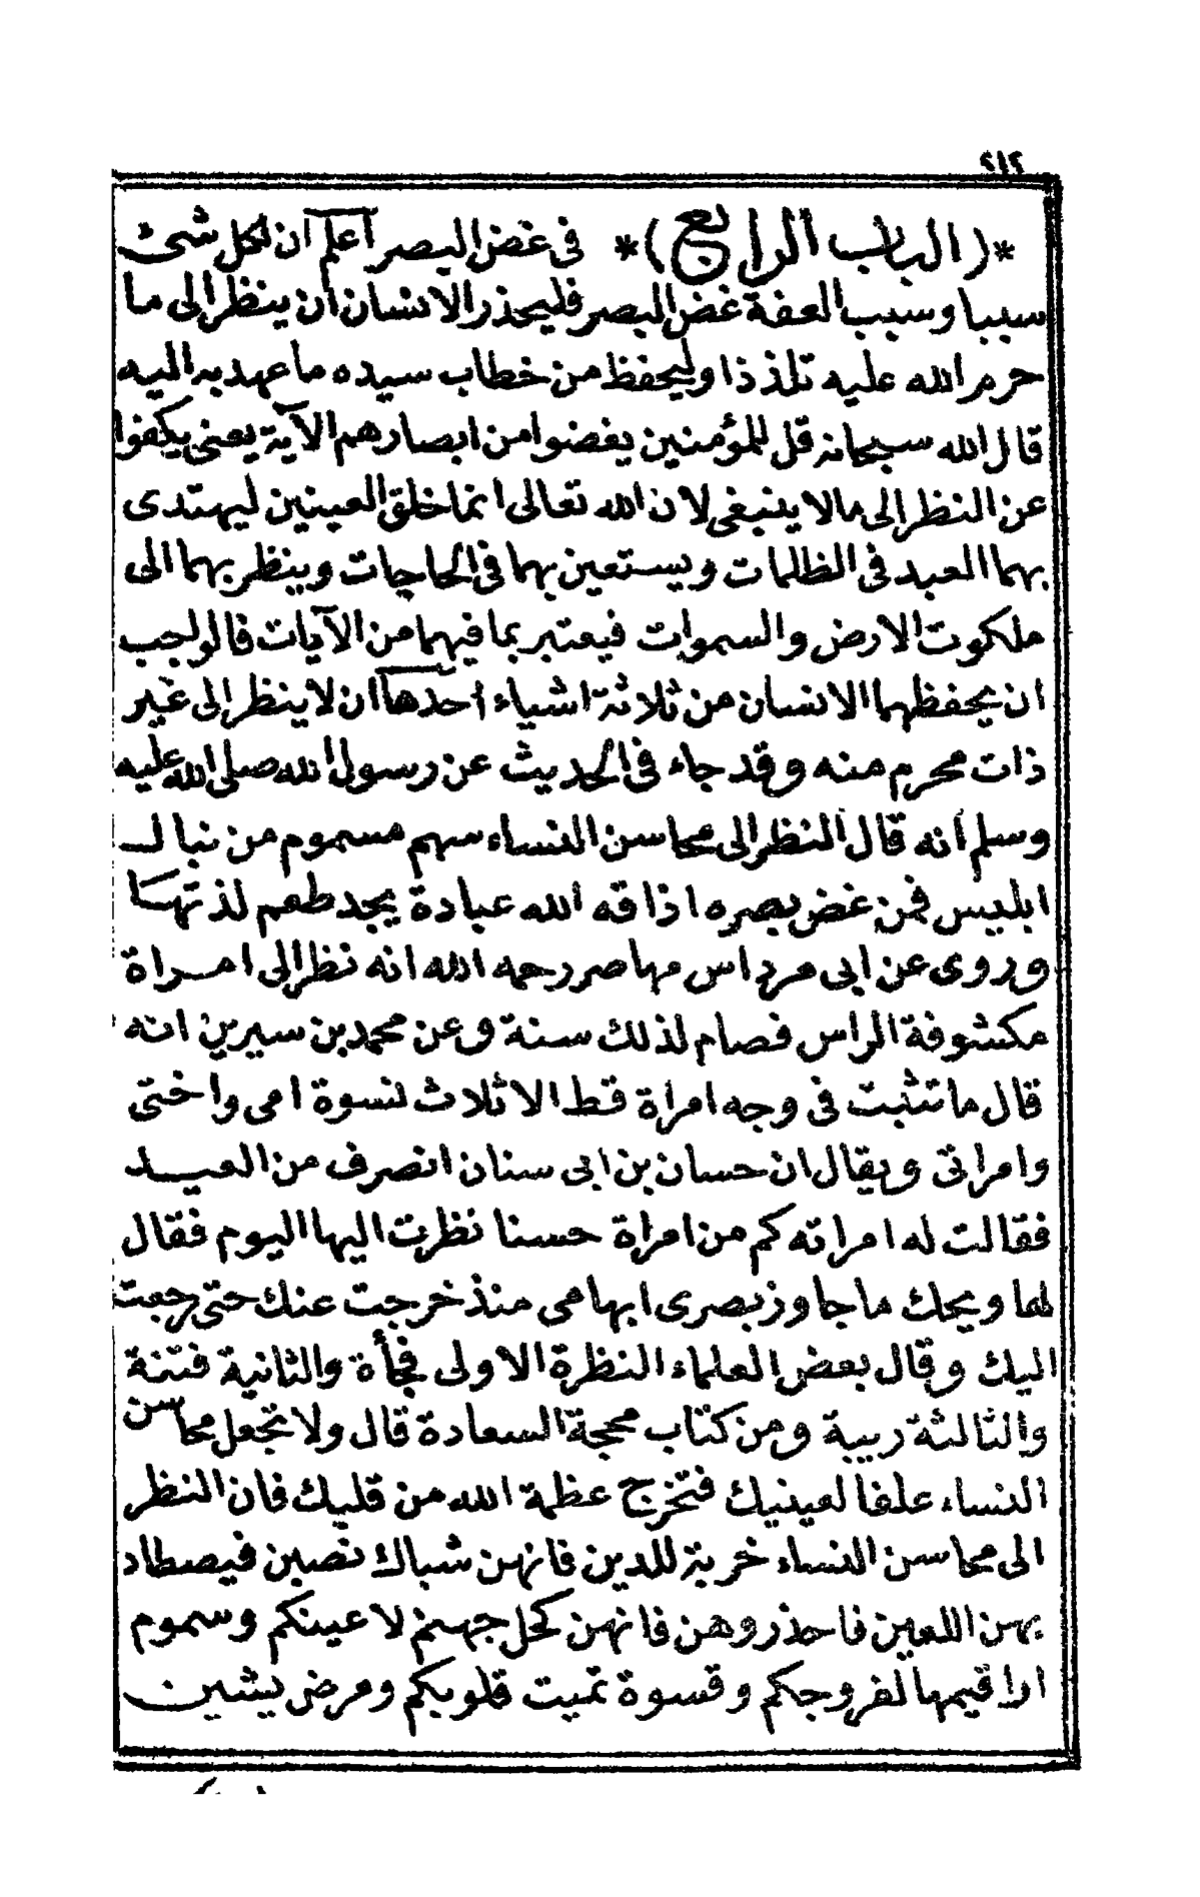 ٢١٢
*(الباب الرابع)* فى غض البصر أعلم ان لكل شىء
سببا وسبب العفة غض البصر فليحذر الانسان ان ينظر الى ما
حرم الله عليه تلذذا وليحفظ من خطاب سيده ما عهد به اليه
قال الله سبحانه قل للمؤمنين يغضوا من ابصارهم الآية يعنى يكفوا
عن النظر الى ما لا ينبغى لان الله تعالى انما خلق العينين ليهتدى
بهما العبد فى الظلمات ويستعين بهما فى الحاجات وينظر بهما الى
ملكوت الارض والسموات فيعتبر بما فيهما من الآيات فالواجب
ان يحفظهما الانسان من ثلاثة اشياء أحدها ان لا ينظر الى غير
ذات محرم منه وقد جاء فى الحديث عن رسول الله صلى الله عليه
وسلم انه قال النظر الى محاسن النساء سهم مسموم من نبال
ابليس فمن غض بصره اذاقه الله عبادة يجد طعم لذتها
وروى عن ابى مرداس مهاصر رحمه الله انه نظر الى امراة
مكشوفة الراس فصام لذلك سنة وعن محمد بن سيرين انه
قال ما تثبت فى وجه امراة قط الا ثلاث نسوة امى واختى
وامراتى ويقال ان حسان بن ابى سنان انصرف من العيد
فقالت له امراته كم من امراة حسنا نظرت اليها اليوم فقال
لها ويحك ما جاوز بصرى ابهامى منذ خرجت عنك حتى رجعت
اليك وقال بعض العلماء النظرة الاولى فجأة والثانية فتنة
والثالثة ريبة ومن كتاب محجة السعادة قال ولا تجعل محاسن
النساء علفا لعينيك فتخرج عظمة الله من قلبك فان النظر
الى محاسن النساء خربة للدين فانهن شباك نصبن فيصطاد
بهن اللعين فاحذروهن فانهن كحل جهنم لاعينكم وسموم
اراقيمها لفروجكم وقسوة تميت قلوبكم ومرض يشين